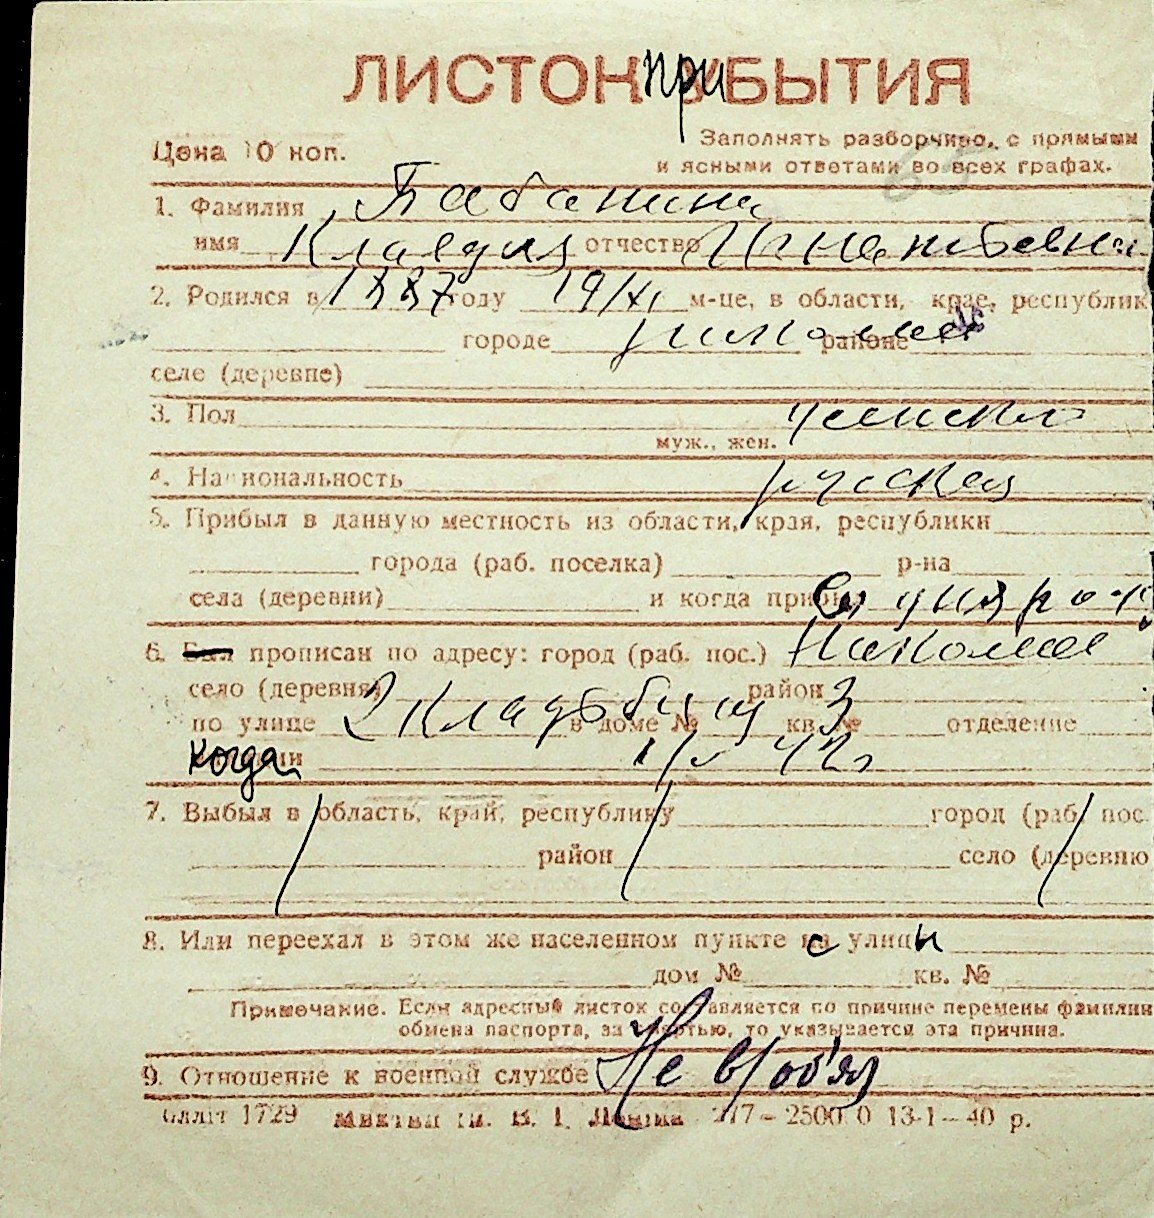 ЛИСТОК ПРИБЫТИЯ
Цена 10 коп.
Заполнять разборчиво, с прямыми
и ясными ответами во всех графах.
1. Фамилия Бабанина
имя Клавдия отчество Игнатьевна
2. Родился в 1887 году 19/XI м-це, в области, крае, республик
городе Николаев районе
селе (деревне)
3. Пол женский
муж., жен.
4. Национальность русская
5. Прибыл в данную местность из области, края, республики
города (раб. поселка) р-на
села (деревни) и когда прибыл
6. Был прописан по адресу: город (раб. пос.) Николаев
село (деревня) район
по улице 2 Кладбищ в доме № 3 кв. № отделение
когда 42
7. Выбыл в область, край, республику город (раб. пос.
район село (деревню
8. Или переехал в этом же населенном пункте с улицы
дом № кв. №
Примечание. Если адресный листок составляется по причине перемены фамилии
обмена паспорта, за смертью, то указывается эта причина.
9. Отношение к военной службе Не в/об'яз
1729 277–2500 0 13-1–40 р.